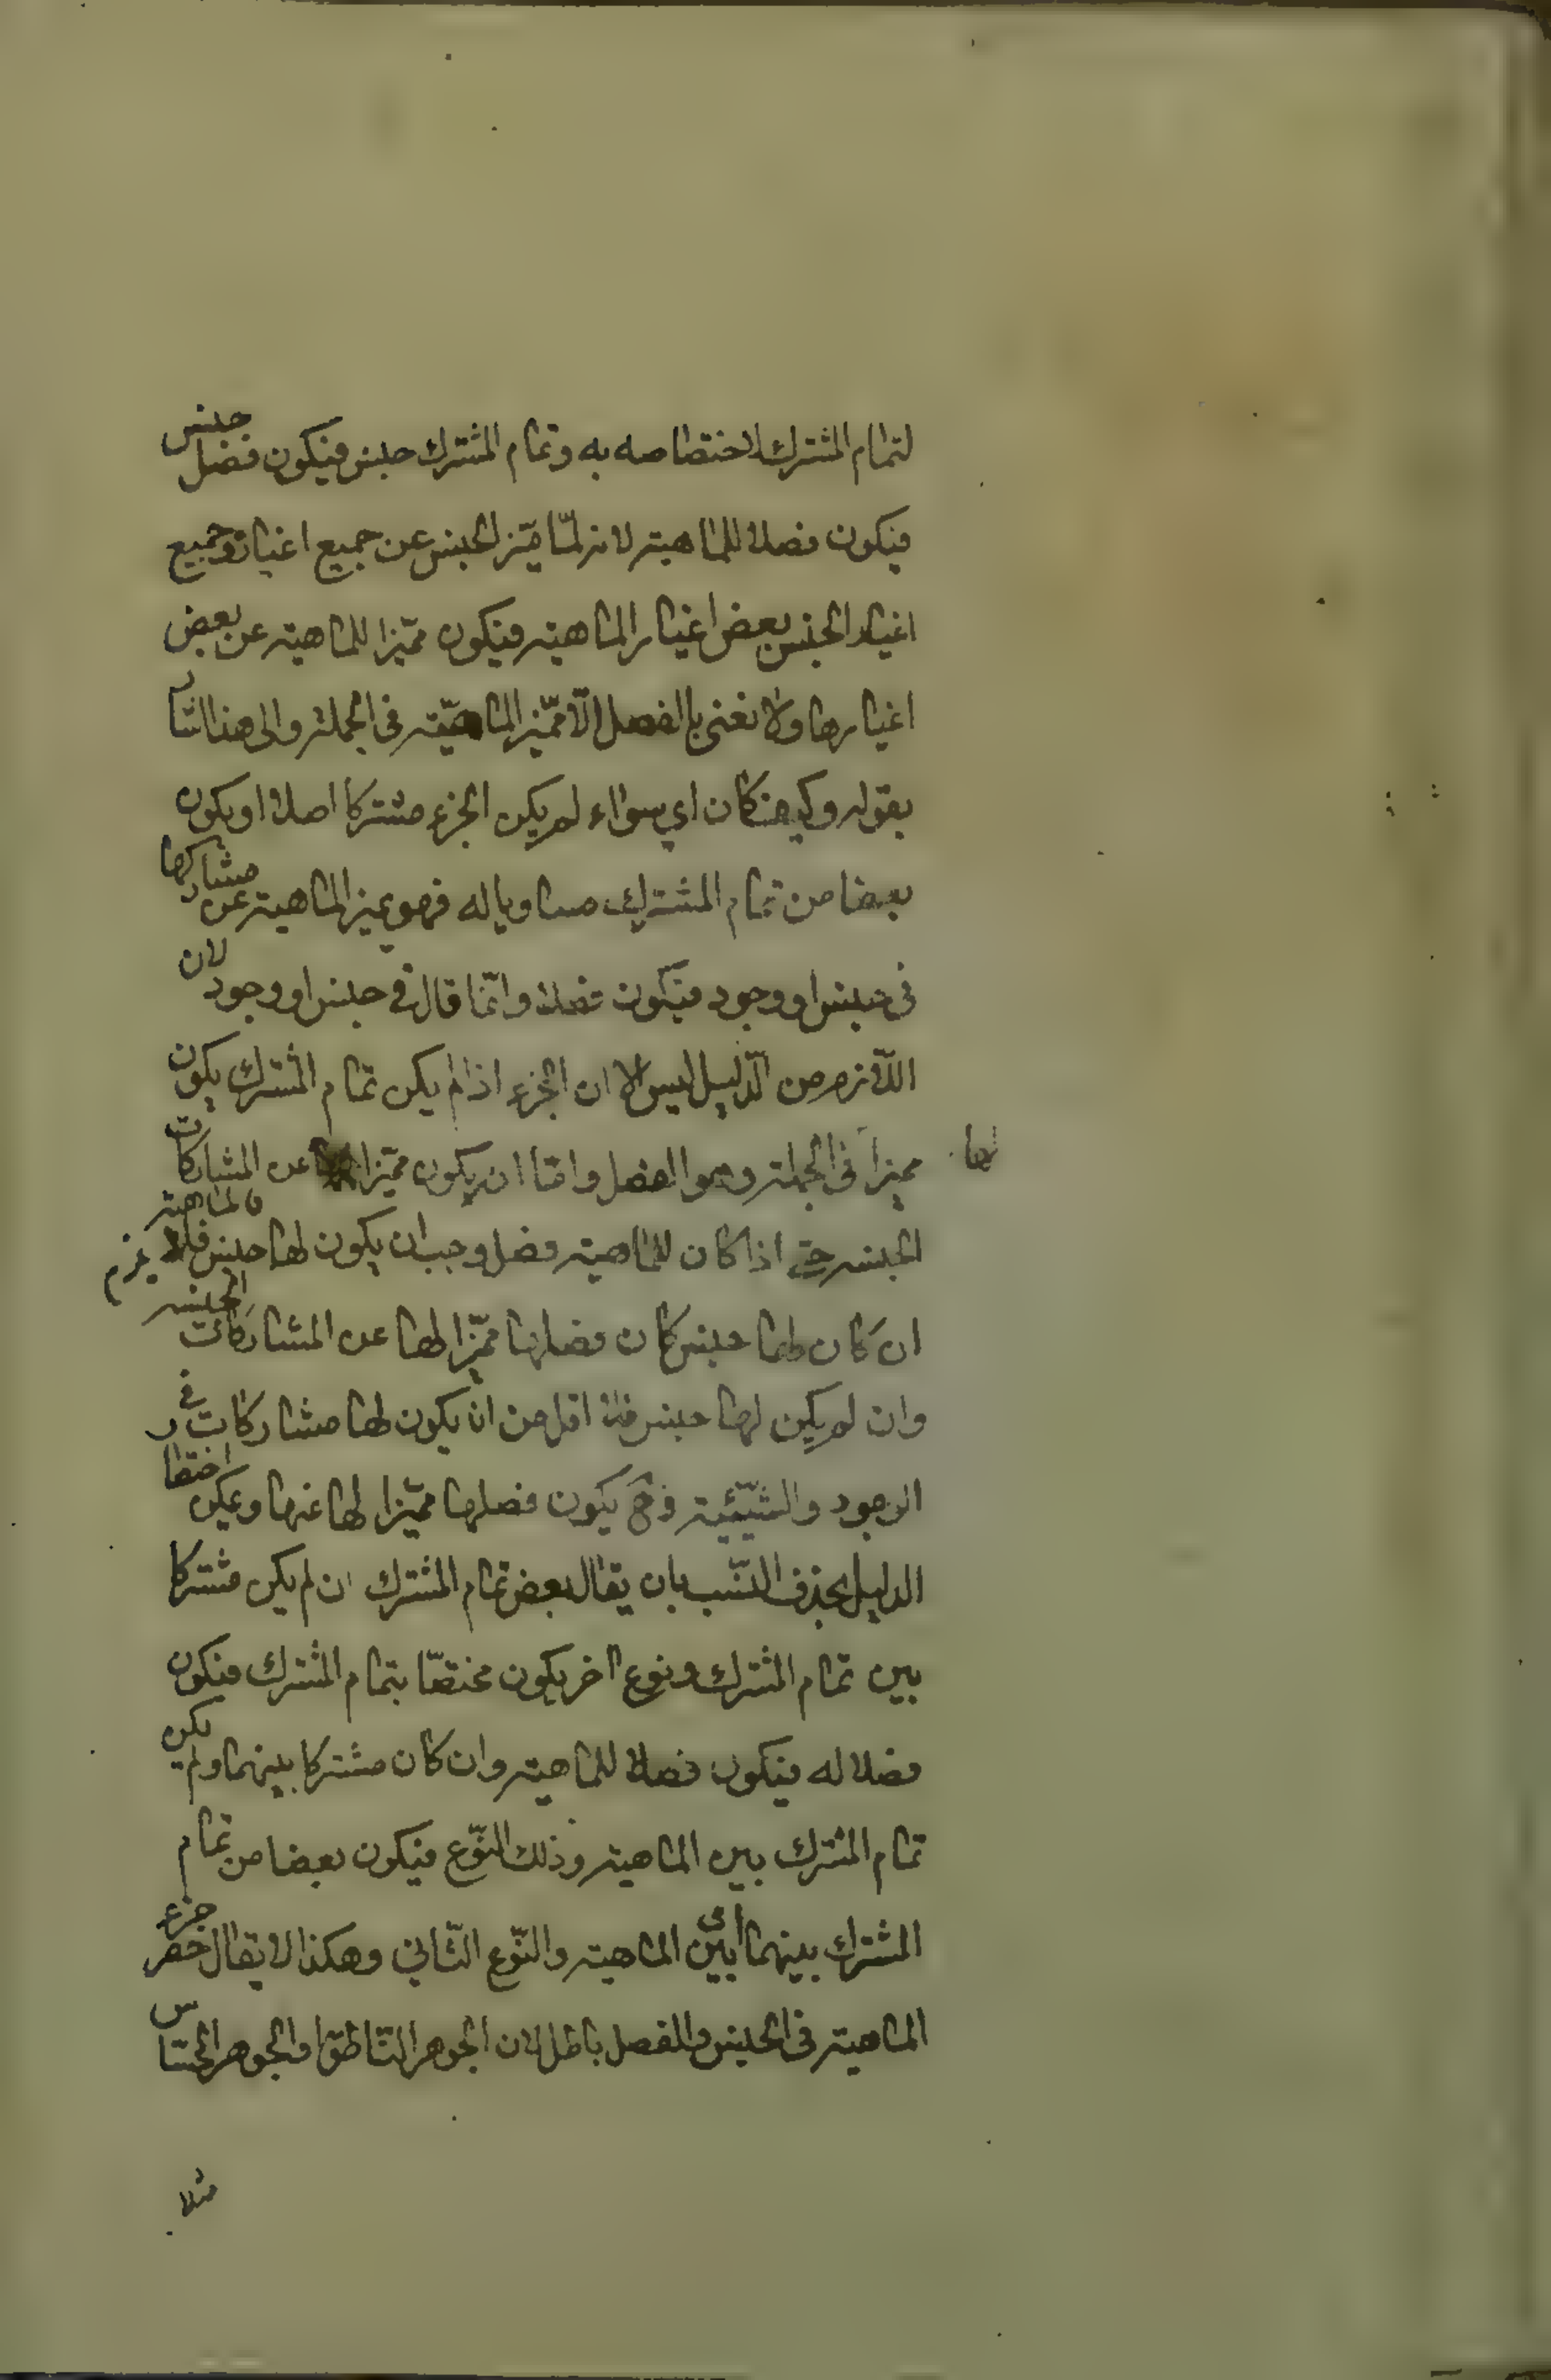 لتمام المشترك لاختصاصه به وتمام المشترك جنس فيكون فصل جنس
فيكون فصلا للماهية لانه لما ميّز الجنس عن جميع اغياره وجميع
اغيار الجنس بعض اغيار الماهية فيكون مميّزا للماهية عن بعض
اغيارها ولا نعنى بالفصل الّا مميّز الماهيّة فى الجملة والى هذا اشار
بقوله وكيف كان اي سواء لم يكن الجزء مشتركا اصلا او يكون
بعضا من تمام المشترك مساويا له فهو يميز الماهية عن مشاركها
فى جنس او وجود فيكون فصلا وانّما قال فى جنس او وجود لان
اللّازم من الدّليل ليس الا ان الجزء اذا لم يكن تمام المشترك يكون
مميزا فى الجملة وهو الفصل وامّا ان يكون مميّزا عن المشاركات
لها
الجنسية حتى اذا كان للماهية فصل وجب ان يكون لها جنس فلا يلزم فالماهية
ان كان لها جنس كان فصلها مميّزا لها عن المشاركات الجنسية
وان لم يكن لها جنس فلا اقل من ان يكون لها مشاركات فى
الوجود والشيئيّة وح يكون فصلها مميّزا لها عنها ويمكن اختصار
الدليل بحذف النّسب بان يقال بعض تمام المشترك ان لم يكن مشتركا
بين تمام المشترك ونوع اخر يكون مختصّا بتمام المشترك فيكون
فصلا له فيكون فصلا للماهية وان كان مشتركا بينهما ولم يكن
تمام المشترك بين الماهية وذلك النّوع فيكون بعضا من تمام
المشترك بينهما أى بين الماهية والنّوع الثّانى وهكذا لا يقال حصر جزء
الماهية فى الجنس والفصل باطل لان الجوهر النّاطق او الجوهر الحسّاس
مثلا